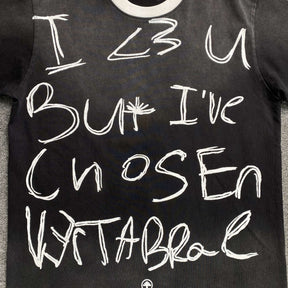 I <3 u
But I've
Chosen